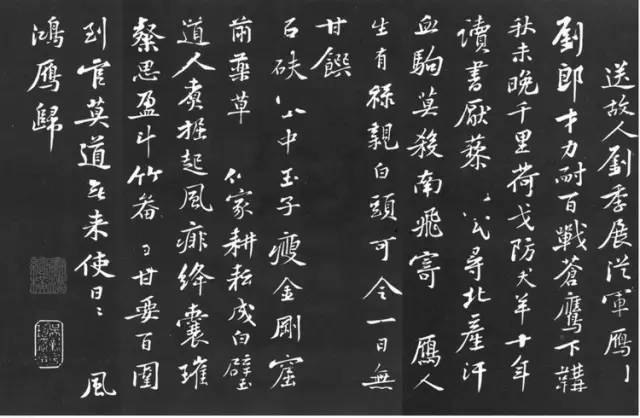 送故人劉季展從軍鴈門
劉郎才力耐百戰蒼鷹下韝
秋未晚千里荷戈防犬羊十年
讀書厭藜尋北產汗
血駒莫殺南飛寄鴈人
生有祿親白頭可令一日無
甘饌
石趺中玉子瘦金剛窟
前藥草家耕耘成白璧
道人煮掘起風痱絳囊璀
粲思盈斗竹畚甘要百圍
到官莫道無來使日日風
鴻鴈歸